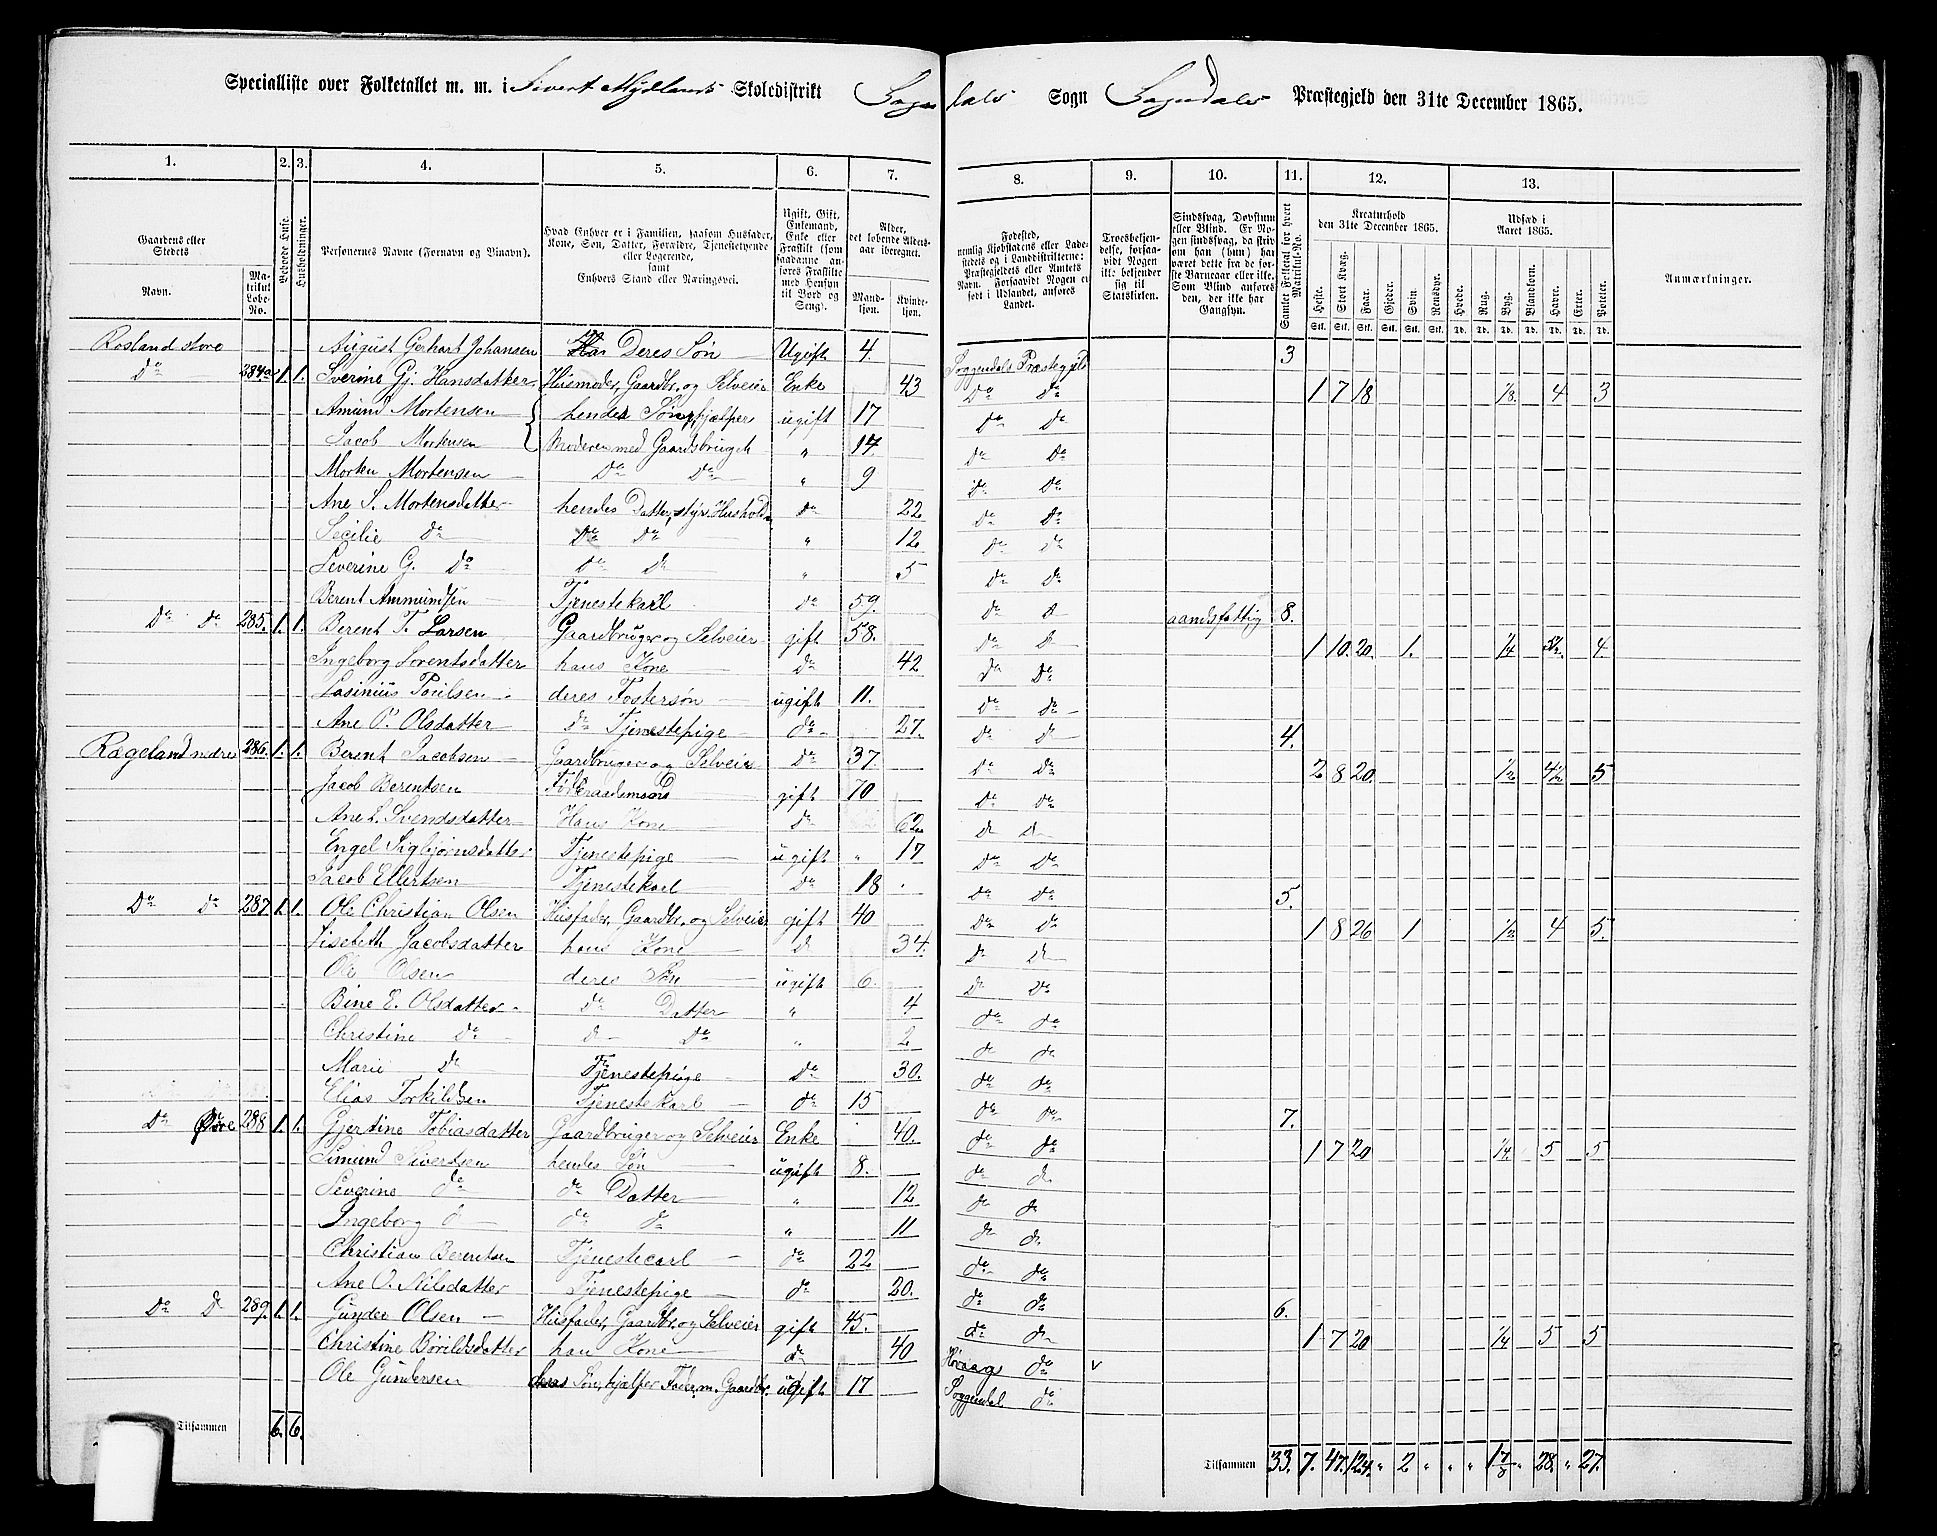 Specialliste over Folketallet m. m. i Sivert Mydlands Skoledistrikt Sogndals Sogn Sogndals Præstegjeld den 31te December 1865.
1. 2. 3. 4. 5. 6. 7. 8. 9. 10. 11. 12. 13.
Gaardens eller Stedets
Navn.
Matrikul Løbe-No.
Beboede Huse.
Husholdninger.
Personernes Navne (Fornavn og Vinavn).
Hvad Enhver er i Familien, saasom Husfader, Kone, Søn, Datter, Forældre, Tjenestetyende eller Logerende, samt Enhvers Stand eller Næringsvei.
Ugift, Gift, Enkemand, Enke eller Fraskilt (som saadanne anføres Fraskilte med Hensyn til Bord og Seng).
Alder, det løbende Aldersaar iberegnet.
Mandkjøn. Kvindekjøn.
Fødested, nemlig Kjøbstadens eller Ladestedets og i Landdistrikterne: Præstegjeldets eller Amtets Navn. Forsaavidt Nogen er født i Udlandet, anføres Landet.
Troesbekjendelse, forsaavidt Nogen ikke bekjender sig til Statskirken.
Sindssvag, Døvstum eller Blind. Er Nogen sindssvag, da skriv om han (hun) har været dette fra de første Barneaar eller ikke. Som Blind anføres den, der ikke har Gangsyn.
Samlet Folketal for hvert Matrikul-No.
Kreaturhold den 31te December 1865.
Heste. Stort Kvæg. Faar. Gjeder. Svin. Rensdyr.
Udsæd i Aaret 1865.
Hvede. Rug. Byg. Blandkorn. Havre. Erter. Poteter.
Anmærkninger.
Rosland store August Gerhart Johansen Deres Søn Ugift 4. Soggendals Præstegjeld 3
Do 284a 1. 1. Sverine Gj. Hansdatter Husmoder, Gaardbr. og Selveier Enke 43 Do Do 1 7 18 1/8. 4 3
Amund Mortensen hendes Søn, hjælper ugift 17 Do Do
Jacob Mortensen Moderen med Gaardsbruget " 14 Do Do
Morten Mortensen Do Do " 9 Do Do
Ane S. Mortensdatter hendes Datter, styr. Hushold. do 22 Do Do
Secilie do Do Do " 12 Do Do
Severine G. Do do D " 5 Do Do
Berent Ammundsen Tjenestekarl do 59. Do D aandsfattig 8.
Do do 285. 1. 1. Berent T. Larsen Gaardbruger og Selveier gift 58. Do D 1 10. 20. 1. 1/4 5 1/2. 4.
Ingeborg Lorentsdatter hans Kone do 42 Do Do
Lasinius Poulsen deres Fostersøn ugift 11. Do Do
Ane P. Olsdatter do Tjenestepige do 27. Do D 4.
Rægeland nedre 286. 1. 1. Berent Jacobsen Gaardbruger og Selveier Do 37. Do Do 2 8 20. 1/2 4 1/2 5
Jacob Berentsen Føderaadsmand gift 70 Do Do
Ane L. Svendsdatter Hans Kone D 62 D D
Engel Sigbjørnsdatter Tjenestepige ugift " 17 Do Do
Jacob Ellertsen Tjenestekarl Do 18 Do Do 5.
Do do 287. 1. 1. Ole Christian Olsen Husfader, Gaardbr. og Selveier gift 40 Do Do 1 8 26 1 1/2 4 5.
Lisebeth Jacobsdatter hans Kone D 34. D D
Ole Olsen deres Søn ugift 6. D Do
Bine E. Olsdatter do Datter " 4 do do
Christine Do D Do " 2 do do
Marie D Tjenestepige Do 30. do do
Elias Torkildsen Tjenestekarl do 15 do do 7.
Do Øvre 288 1. 1. Gjertine Tobiasdatter Gaardbruger og Selveier Enke 40. do do 1 7 20 1/4. 5 5
Simund Sivertsen hendes Søn ugift 8. do do
Severine do do Datter " 12 do do
Ingeborg d do do " 11 do do
Christian Berentsen Tjenestecarl do 22 do do
Ane O. Nilsdatter Tjenestepige do 20. do do 6.
Do D 289. 1. 1. Gunder Olsen Husfader, Gaardbr. og Selveier gift 45. do do 1 7 20 1/4 5 5
Christine Børildsdatter han Kone do 40 do v
Ole Gundersen deres Søn, hjælper Fader m. Gaardbr. ugift 17 Soggendal do
Tilsammen 6. 6. Tilsammen 33. 7. 47. 124. " 2 " " " 17/8 " 28. " 27.